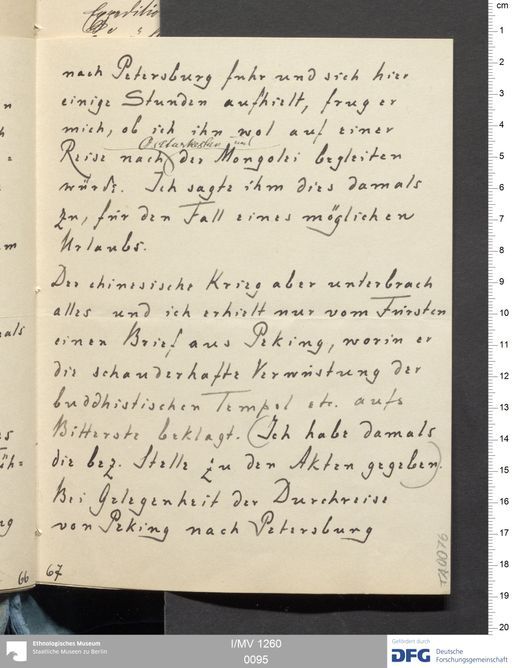 nach Petersburg fuhr und sich hier
einige Stunden aufhielt, frug er
mich, ob ich ihn wol auf einer
Ostturkestan und
Reise nach der Mongolei begleiten
würde. Ich sagte ihm dies damals
zu, für den Fall eines möglichen
Urlaubs.
Der chinesische Krieg aber unterbrach
alles und ich erhielt nur vom Fürsten
einen Brief aus Peking, worin er
die schauderhafte Verwüstung der
buddhistischen Tempel etc. aufs
Bitterste beklagt. (Ich habe damals
die bez. Stelle zu den Akten gegeben.)
Bei Gelegenheit der Durchreise
von Peking nach Petersburg
66
67
TA0076
cm
1
2
3
4
5
6
7
8
9
10
11
12
13
14
15
16
17
18
19
20
Ethnologisches Museum
Staatliche Museen zu Berlin
I/MV 1260
0095
Gefördert durch
DFG
Deutsche
Forschungsgemeinschaft